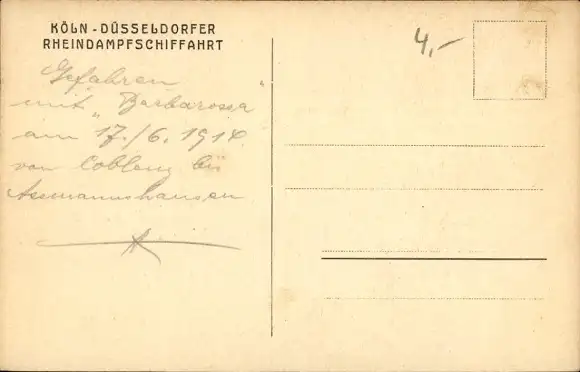 KÖLN - DÜSSELDORFER
RHEINDAMPFSCHIFFAHRT
4,-
Gefahren
mit „Barbarossa"
am 17./6. 1914.
von Coblenz bis
Assmannshausen